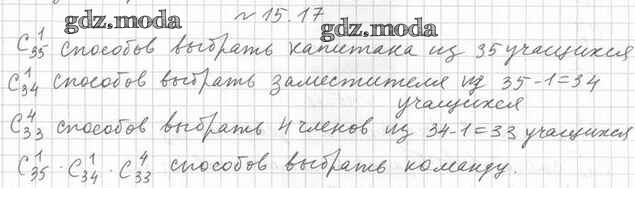 № 15.17
gdz.moda gdz.moda
C¹₃₅ способов выбрать капитана из 35 учащихся
C¹₃₄ способов выбрать заместителя из 35-1=34
учащихся
C⁴₃₃ способов выбрать 4 членов из 34-1=33 учащихся
C¹₃₅ · C¹₃₄ · C⁴₃₃ способов выбрать команду.